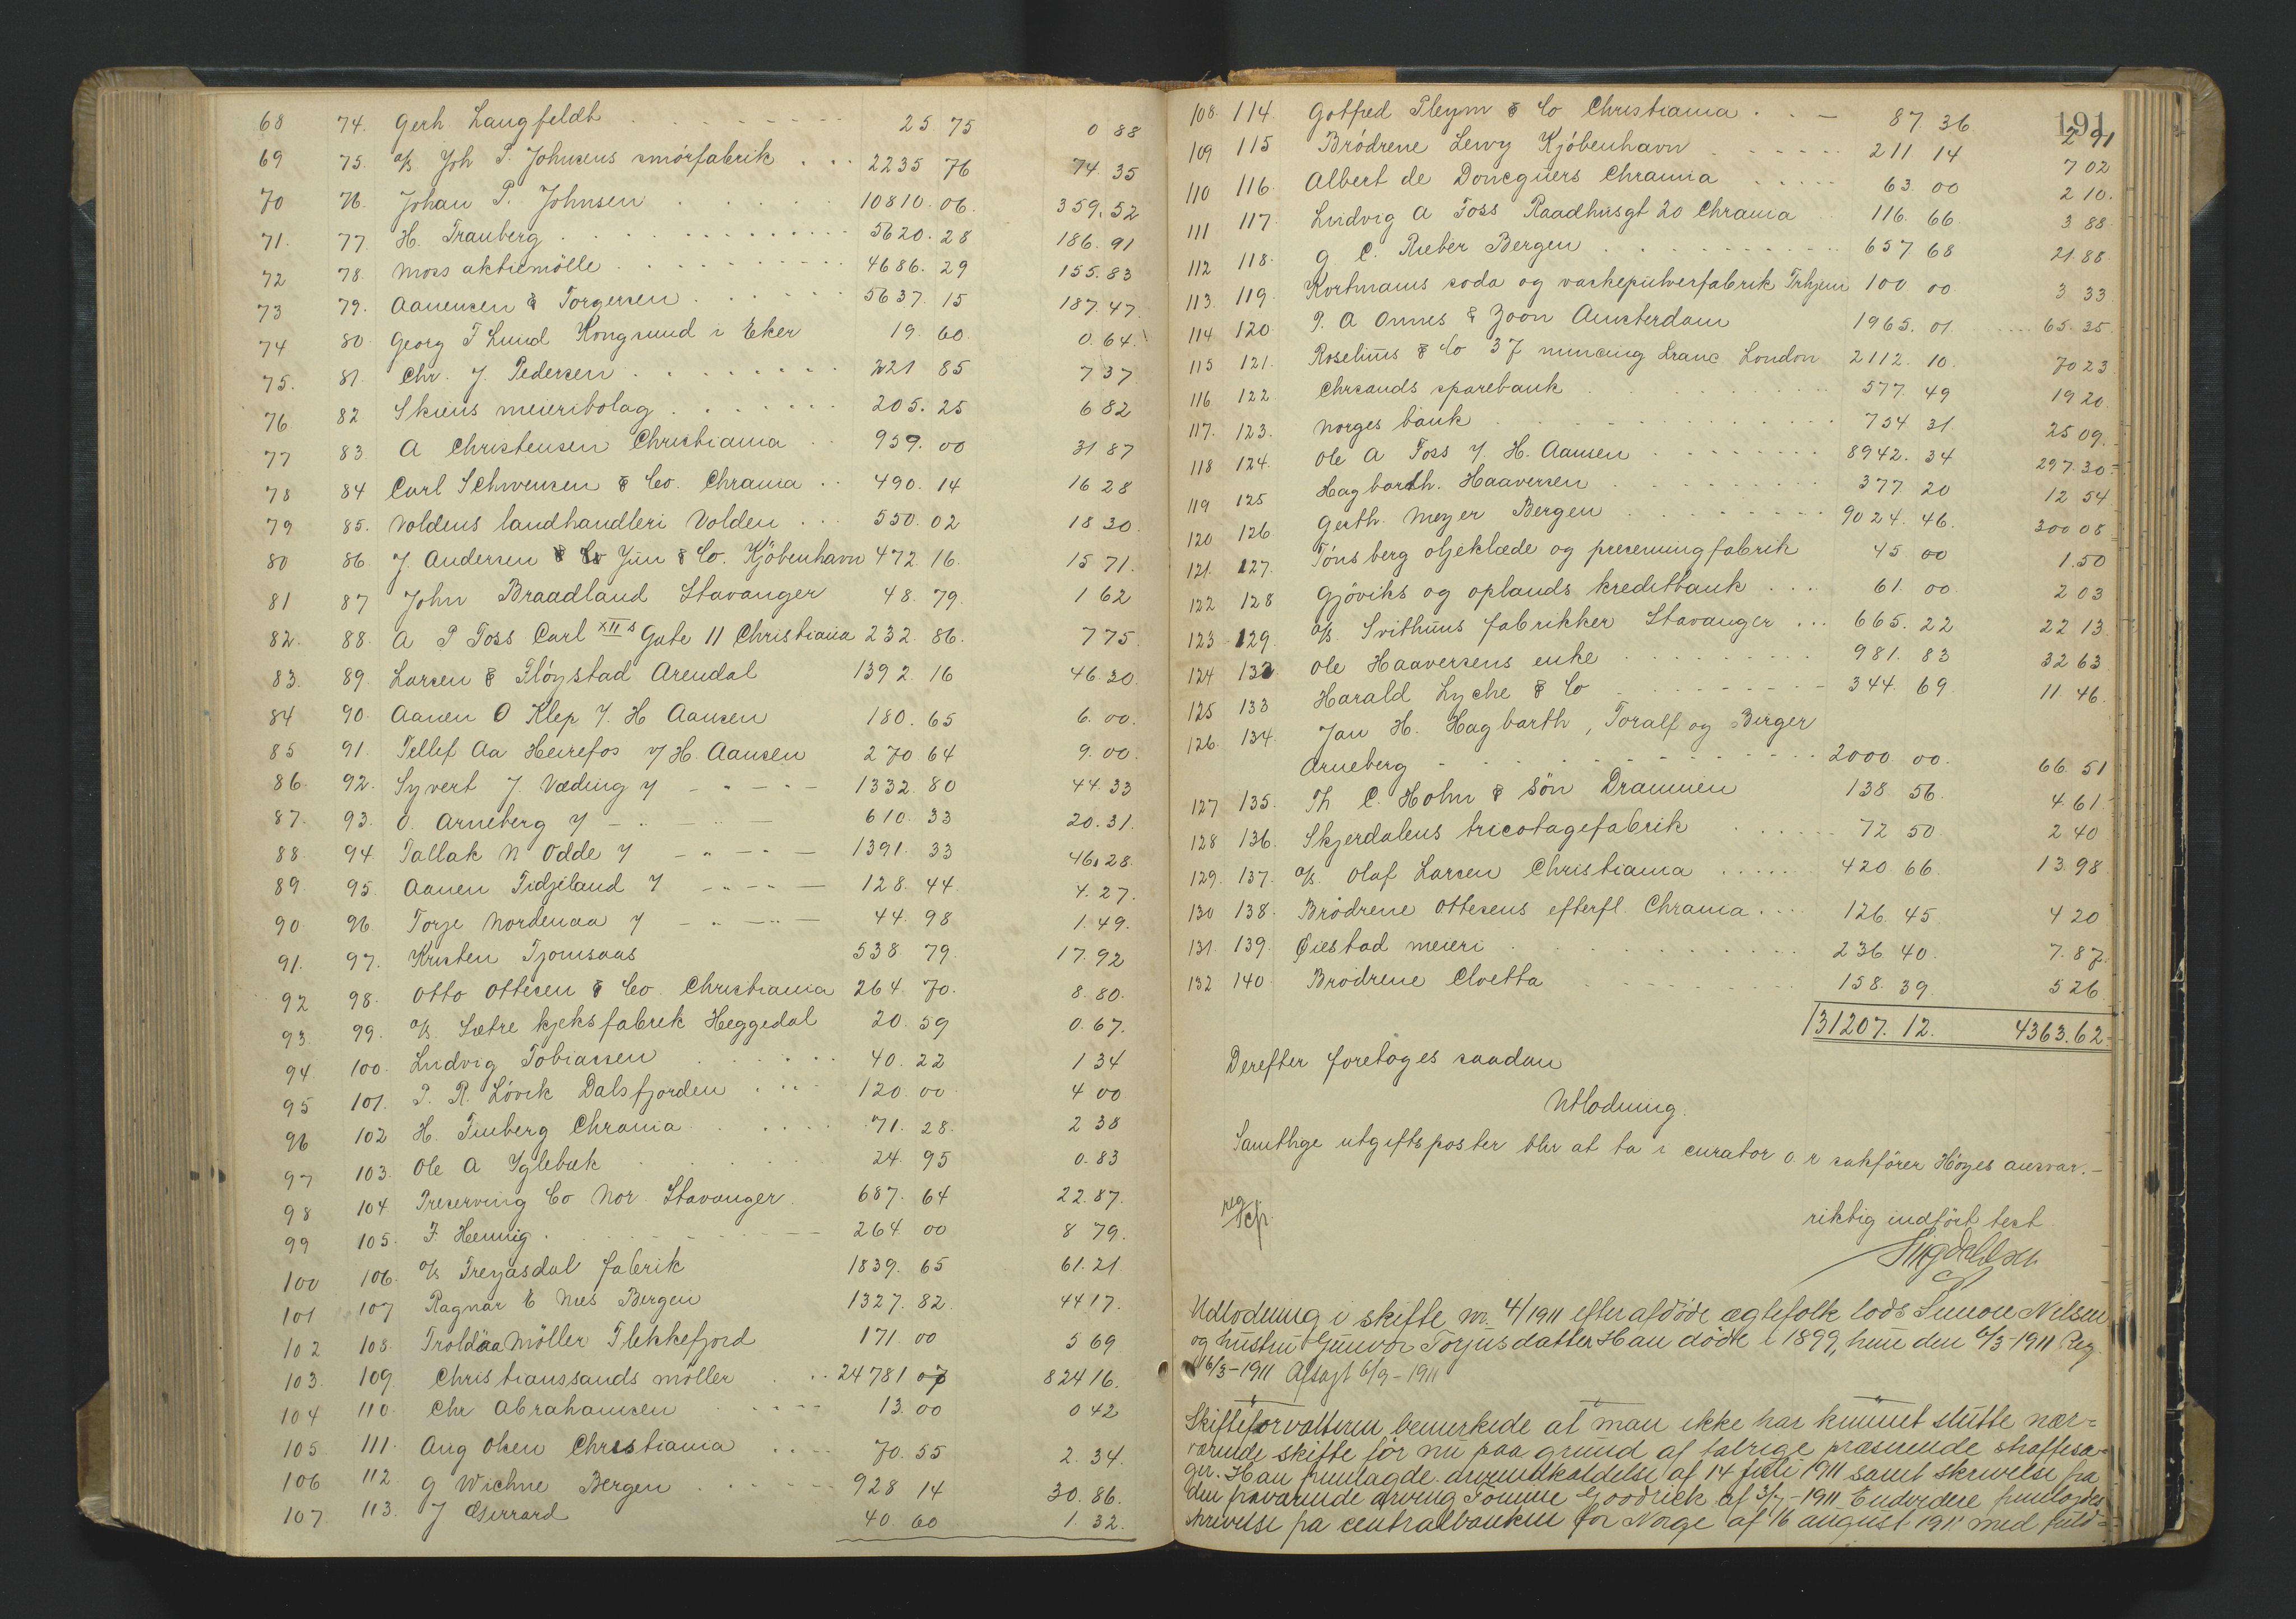 68 74. Gerh. Langfeldt 25 75 0 88
69 75. a/s Joh P. Johnsens smörfabrik 2235 76 74 35
70 76. Johan P. Johnsen 10810. 06. 359. 52
71. 77. H. Tranberg 5620. 28 186. 91
72 78. Moss aktiemölle 4686. 29 155. 83
73 79. Aanensen & Torgersen 5637. 15 187. 47.
74 80 Georg T Lund Kongsund i Eker 19. 60. 0. 64.
75. 81 Chr. J. Pedersen 221 85 7 37
76 82 Skiens meieribolag 205. 25 6 82
77 83 A Christensen Christiania 959. 00 31 87
78 84 Carl Schwensen & Co. Chrania 490. 14 16 28
79 85. Voldens landhandleri Volden 550. 02 18 30
80 86. J. Andersen Jün & Co. Kjöbenhavn 472 16. 15 71.
81 87 John Braadland Stavanger 48. 79. 1 62
82. 88. A P Foss Carl XIIs Gate 11 Christiania 232. 86. 7 75.
83. 89. Larsen & Fløystad Arendal 1392. 16 46. 30.
84 90. Aanen O Klep J. H Aansen 180. 65 6. 00.
85 91. Tellef Aa Heirefos J H. Aansen 270 64 9. 00.
86. 92. Syvert J. Væding J - " - " - 1332. 80 44. 33
87. 93. O. Arneberg J - " - " - 610. 33 20. 31.
88. 94 Tallak N Odde J - " - " - 1391. 33 46. 28.
89. 95. Aanen Tidjeland J - " - " - 128. 44. 4. 27.
90 96 Torje Nordenaa J - " - " - 44. 98 1. 49.
91. 97. Kristen Tjomsaas 538. 79. 17. 92
92 98. Otto Ottesen & Co. Christiania 264. 70. 8. 80.
93. 99. a/s. Sætre kjeksfabrik Heggedal 20. 59 0. 67.
94. 100. Ludvig Tobiassen 40. 22 1 34
95 101. P. R. Lövik Dalsfjorden 120. 00 4 00
96 102 H. Finberg Chrania 71. 28. 2 38
97 103. Ole A Yglebæk 24. 95 0. 83
98 104 Preserving Co Nor. Stavanger 687. 64 22. 87.
99 105. F. Hennig 264 00 8 79.
100 106. a/s Trejasdal fabrik 1839. 65 61. 21
101 107 Ragnar E Nees Bergen 1327. 82. 44 17.
102 108. Troldaa Möller Flekkefjord 171. 00 5 69
103. 109. Christianssands möller 24781 07 824 16.
104 110. Chr Abrahamsen 13. 00 0 42
105. 111. Aug Olsen Christiania 70. 55 2. 34.
106 112. G Wichne Bergen 928 14 30. 86.
107. 113. J Gerrard 40. 60 1. 32.
191
108. 114. Gotfred Pleym & Co Christiania 87. 36 2 91
109 115 Brödrene Lewy Kjöbenhavn 211 14 7 02
110 116. Albert de Doncquers Chrania 63. 00 2 10.
111 117. Ludvig A Foss Raadhusgt 20 Chrania 116. 66. 3 88
112 118. G. C. Rieber Bergen 657. 68 21. 88
113. 119. Kortmanns soda og vaskepulverfabrik Trhjem 100 00 3 33
114 120 P. A Onnes & Zoon Amsterdam 1965. 01. 65. 35
115 121. Roselius & Co 37 mincing Lranc London 2112. 10. 70 23
116 122 Chrsands sparebank 577. 49 19 20
117. 123. Norges bank 754 31. 25 09.
118 124. Ole A Foss J. H. Aansen 8942. 34 297. 30
119 125 Hagbarth. Haaversen 377. 20 12 54
120 126 Gerth. Meyer Bergen 9024. 46. 300 08
121. 127. Tönsberg oljeklæde og presenningfabrik 45. 00 1. 50
122 128 Gjöviks og oplands kreditbank 61. 00 2 03
123 129. a/s. Svithuns fabrikker Stavanger 665. 22 22 13
124 132 Ole Haaversens enke 981. 83 32 63
125 133 Harald Lyche & Co 344. 69 11. 46.
126. 134. Jan H. Hagbarth, Toralf og Birger
Arneberg 2000. 00. 66. 51
127 135. Th C. Holm & Sön Drammen 138. 56. 4. 61.
128 136. Skjerdalens tricotagefabrik 72 50 2 40
129. 137. a/s. Olaf Larsen Christiania 420 66. 13. 98
130 138. Brödrene Ottesens efterfl. Chrania 126. 45. 4 20
131. 139. Øiestad meieri 236. 40. 7. 87.
132 140. Brödrene Cloetta 158. 39. 5 26.
131207. 12. 4363. 62
Derefter foretoges saadan
Utlodning.
Samtlige utgiftsposter blir at ta i curator o. r sakförer Høyes ansvar.-
riktig indfört test
Udlodning i skifte nr. 4/1911 efter afdöde ægtefolk lods Simon Nilsen
og hustru Gunvor Torjusdatter. Han döde i 1899, hun den 6/3-1911 Reg.
16/3-1911 Afsagt 6/9-1911
Skifteforvalteren bemerkede at man ikke har kunnet slutte nær=
værende skifte för nu paa grund af talrige presserende straffesa=
ger. Han fremlagde arveindkaldelse af 14 juli 1911 samt skrivelse fra
den fraværende arving Tomine Goodrick af 3/7-1911. Endvidere fremlagdes
skrivelse fra centralbanken for Norge af 16 august 1911 med fuld=